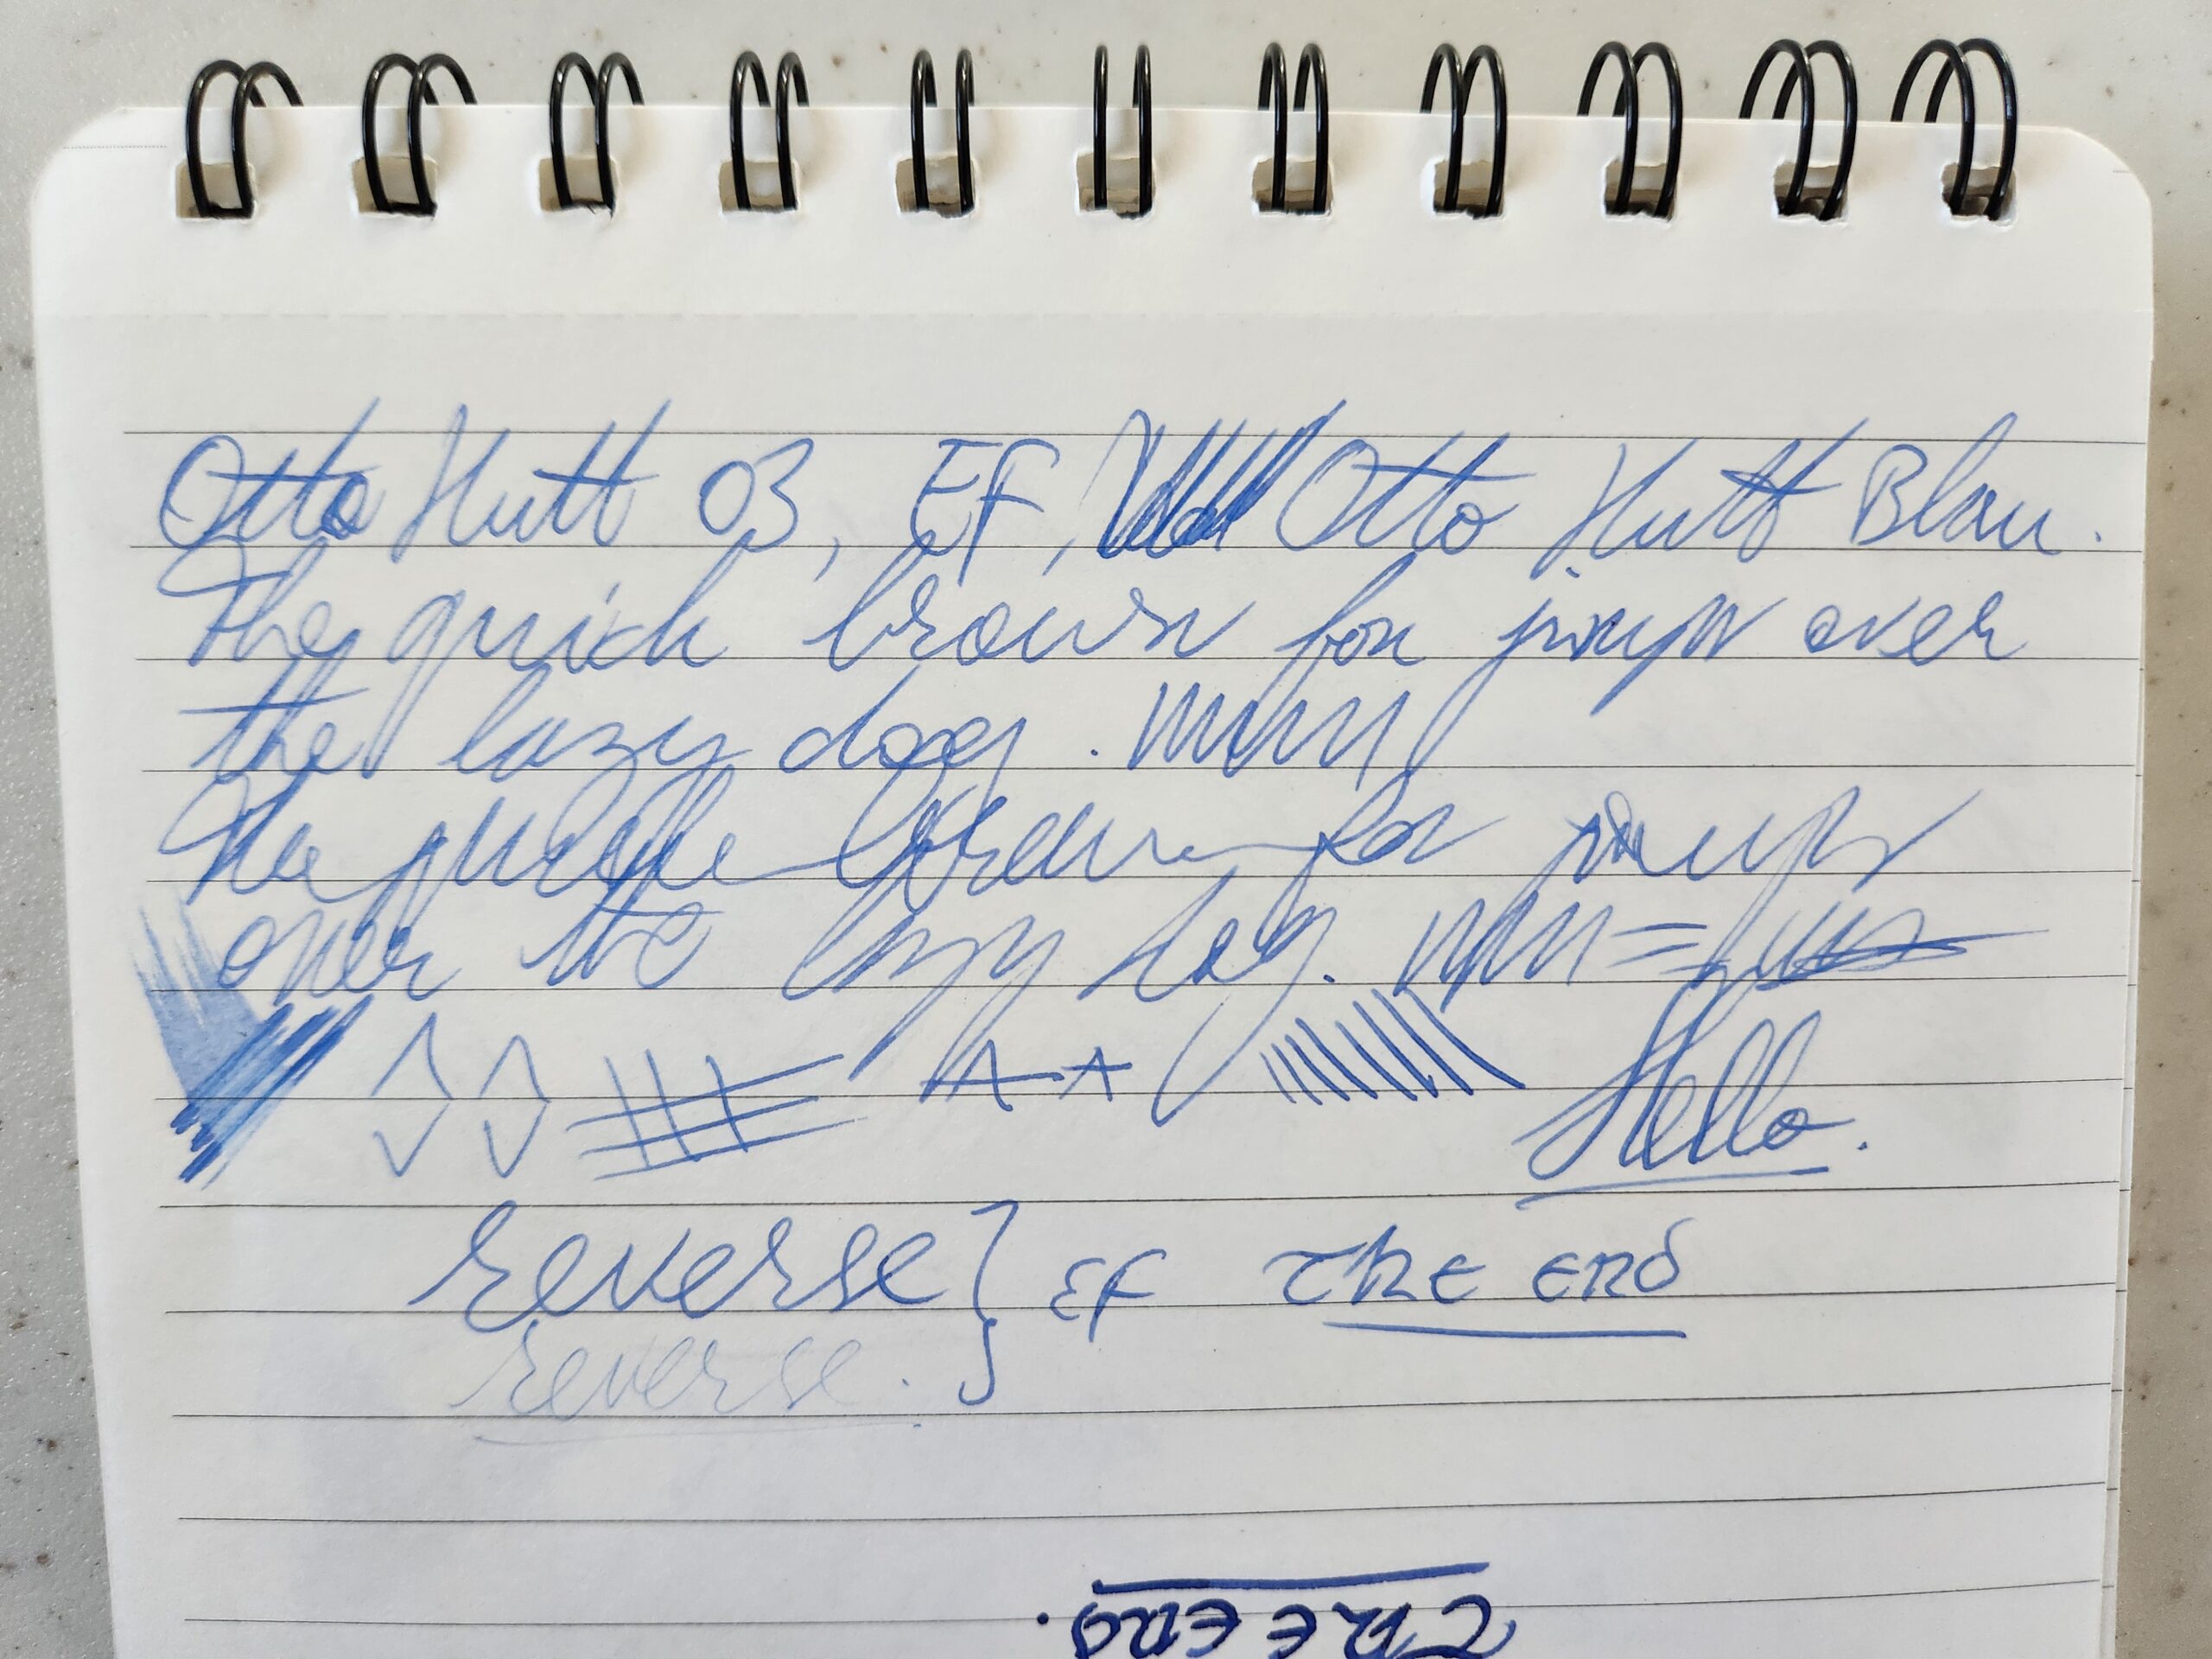 Otto Hutt 03, EF, Otto Hutt Blau.
The quick brown fox jumps over
the lazy dog.
The quick brown fox jumps
over the lazy dog.
Hello.
reverse } EF THE END
reverse.
THE END.